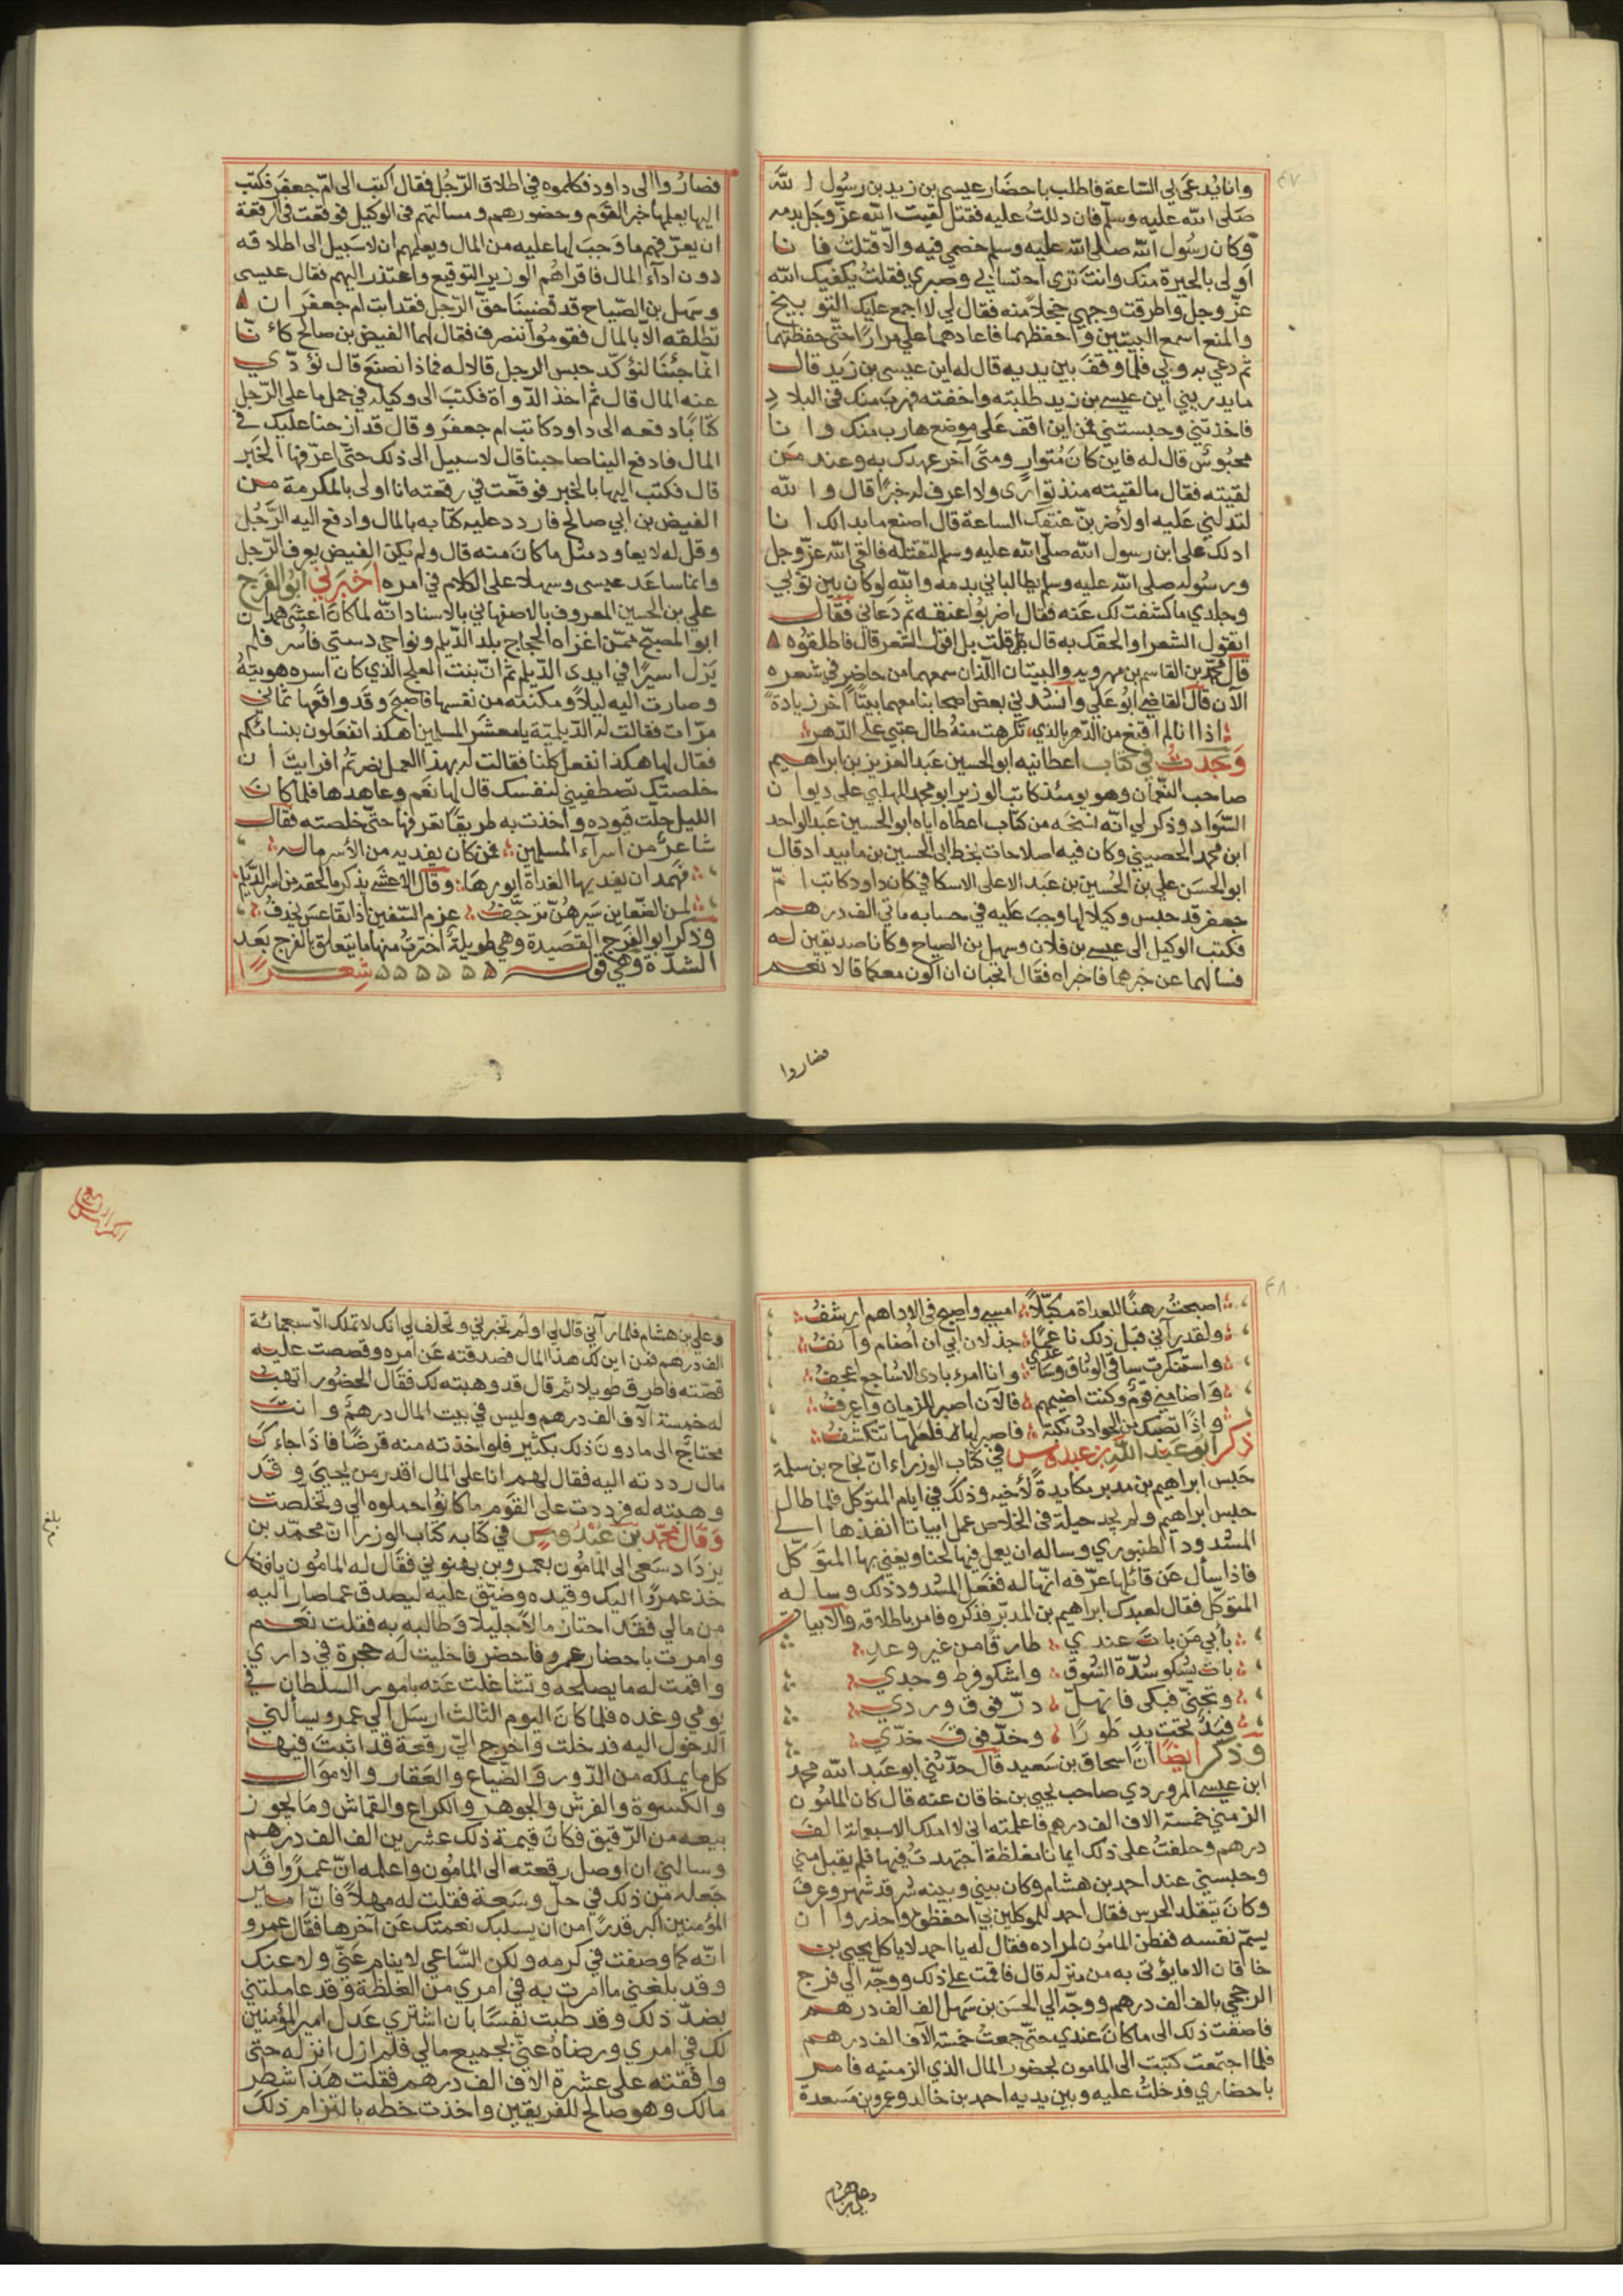 ٤٧
وانا يدعى لي الساعة فاطلب باحضار عيسى بن زيد بن رسول الله
صلى الله عليه وسلم فان دللت عليه فقتل لقيت الله عز وجل بدمه
وكان رسول الله صلى الله عليه وسلم خصمي فيه والا قتلت فانا
اولى بالحيرة منك وانت ترى احتسابي وصبري فقلت يكفيك الله
عز وجل واطرقت وجهي خجلا منه فقال لي لا اجمع عليك التوبيخ
والمنع اسمع البيتين واحفظهما فاعادهما علي مرارا حتى حفظتهما
ثم دعي به وبي فلما وقف بين يديه قال له اين عيسى بن زيد قال
ما يدريني اين عيسى بن زيد طلبته واخفته فهرب منك في البلاد
فاخذتني وحبستني فمن اين اقف على موضع هارب منك وانا
محبوس قال له فاين كان متوار ومتى آخر عهدك به وعند من
لقيته فقال ما لقيته منذ توارى ولا اعرف له خبرا قال والله
لتدلني عليه او لأضربن عنقك الساعة قال اصنع ما بدالك انا
ادلك على ابن رسول الله صلى الله عليه وسلم لتقتله فالقى الله عز وجل
ورسوله صلى الله عليه وسلم يطالباني بدمه والله لو كان بين ثوبي
وجلدي ما كشفت لك عنه فقال اضربوا عنقه ثم دعاني فقال
اتقول الشعر او الحقك به قال قلت بل اقول الشعر قال فاطلقوه
قال محمد بن القاسم بن مهرويه والبيتان اللذان سمعهما من حاضر في شعره
الآن قال القاضي ابو علي وانشدني بعض اصحابنا معهما بيتا آخر زيادة
اذا انا لم اقنع من الدهر بالذي تكرهت منه طال عتبي على الدهر
وجدت في كتاب اعطانيه ابو الحسين عبد العزيز بن ابراهيم
صاحب النعمان وهو يومئذ كاتب الوزير ابو محمد المهلبي على ديوان
السواد وذكر لي انه نسخه من كتاب اعطاه اياه ابو الحسين عبد الواحد
ابن محمد الحصيني وكان فيه اصلاحات بخط ابي الحسين بن مابيداد قال
ابو الحسن علي بن الحسين بن عبد الاعلى الاسكافي كان داود كاتب ام
جعفر قد حبس وكيلا لها وجب عليه في حسابه مائتي الف درهم
فكتب الوكيل الى عيسى بن فلان وسهل بن الصباح وكانا صديقين له
فسالهما عن خبرهما فاخبراه فقال اتحبان ان اكون معكما قالا نعم
فصاروا
فصاروا الى داود فكلموه في اطلاق الرجل فقال اكتب الى ام جعفر فكتب
اليها يعلمها خبر القوم وحضورهم ومسالتهم في الوكيل فوقعت في الرقعة
ان يعرفهم ما وجب لها عليه من المال ويعلمهم ان لا سبيل الى اطلاقه
دون اداء المال فاقراهم الوزير التوقيع واعتذر اليهم فقال عيسى
وسهل بن الصباح قد قضينا حق الرجل فقد ابت ام جعفر ان
تطلقه الا بالمال فقوموا ننصرف فقال لهما الفيض بن صالح كاننا
انما جئنا لنؤكد حبس الرجل قالا له فماذا نصنع قال نؤدي
عنه المال قال ثم اخذ الدواة فكتب الى وكيله في حمل ما على الرجل
كتابا دفعه الى داود كاتب ام جعفر وقال قد ازحنا عليك في
المال فادفع الينا صاحبنا قال لا سبيل الى ذلك حتى اعرفها الخبر
قال فكتب اليها بالخبر فوقعت في رقعته انا اولى بالمكرمة من
الفيض بن ابي صالح فاردد عليه كتابه بالمال وادفع اليه الرجل
وقل له لا يعاود مثل ما كان منه قال ولم يكن الفيض يعرف الرجل
وانما ساعد عيسى وسهلا على الكلام في امره اخبرني ابو الفرج
علي بن الحسين المعروف بالاصفهاني بالاسناد انه لما كان اعشى همدان
ابو المصبح ممن اغزاه الحجاج بلد الديلم ونواحي دستبي فاسر فلم
يزل اسيرا في ايدي الديلم ثم ان بنت العلج الذي كان اسره هويته
وصارت اليه ليلا ومكنته من نفسها فاصبح وقد واقعها ثماني
مرات فقالت له الديلمية يا معشر المسلمين اهكذا تفعلون بنسائكم
فقال لها هكذا نفعل كلنا فقالت له بهذا العمل نصرتم افرايت ان
خلصتك تصطفيني لنفسك قال لها نعم وعاهدها فلما كان
الليل حلت قيوده واخذت به طريقا تعرفها حتى خلصته فقال
شاعر من اسراء المسلمين فمن كان يفديه من الأسر ماله
فهمدان تفديها الغداة ايورها وقال الاعشى يذكر ما لحقه من اسر الديلم
لمن الظعاين سيرهن ترجف عزم السفين اذا تقاعس يجذف
وذكر ابو الفرج القصيدة وهي طويلة اخترت منها ما يتعلق بالفرج بعد
الشدة وهي قوله شعرا
٤٨
اصبحت رهنا للعداة مكبلا امسي واصبح في الاداهم ارسف
ولقد رآني قبل ذلك ناعما جذلان ابي ان اضام وآنف
واستنكرت ساقي الوثاق وساعدي وانا امرء بادي الاشاجع اعجف
واضامني قوم وكنت اضيمهم فالآن اصبر للزمان واعرف
واذا تصبك من الحوادث نكبة فاصبر لها فلعلها تتكشف
ذكر ابو عبد الله بن عبدوس في كتاب الوزراء ان نجاح بن سلمة
حبس ابراهيم بن مدبر مكايدة لأخيه وذلك في ايام المتوكل فلما طال
حبس ابراهيم ولم يجد حيلة في الخلاص عمل ابياتا انفذها الى
المسدود الطنبوري وساله ان يعمل فيها لحنا ويغني بها المتوكل
فاذا سأل عن قائلها عرفه انها له ففعل المسدود ذلك وساله
المتوكل فقال لعبدك ابراهيم بن المدبر فذكره فامر باطلاقه والابيات
بأبي من بات عندي طارقا من غير وعد
بات يشكو شدة الشوق واشكو فرط وجدي
وتجنى فبكى فانهل در فوق ورد
فيد تحت يد طورا وخد فوق خدي
وذكر ايضا ان اسحاق بن سعيد قال حدثني ابو عبد الله محمد
ابن عيسى المروردي صاحب يحيى بن خاقان عنه قال كان المامون
الزمني خمسة الاف الف درهم فاعلمته اني لا املك الا سبعمائة الف
درهم وحلفت على ذلك ايمانا مغلظة اجتهدت فيها فلم يقبل مني
وحبسني عند احمد بن هشام وكان بيني وبينه شر قد شهر وعرف
وكان يتقلد الحرس فقال احمد للموكلين بي احفظوه واحذروا ان
يسم نفسه ففطن المامون لمراده فقال له يا احمد لا ياكل يحيى بن
خاقان الا ما يؤتى به من منزله قال فاقمت على ذلك ووجه الي فرج
الرخجي بالف الف درهم ووجه الي الحسن بن سهل الف الف درهم
فاضفت ذلك الى ما كان عندي حتى جمعت خمسة الآف الف درهم
فلما اجتمعت كتبت الى المامون بحضور المال الذي الزمنيه فامر
باحضاري فدخلت عليه وبين يديه احمد بن خالد وعمرو بن مسعدة
وعلي بن هشام
وعلي بن هشام فلما رآني قال لي اولم تخبرني وتحلف لي انك لا تملك الا سبعمائة
الف درهم فمن اين لك هذا المال فصدقته عن امره وقصصت عليه
قصته فاطرق طويلا ثم قال قد وهبته لك فقال الحضور اتهب
له خمسة الآف الف درهم وليس في بيت المال درهم وانت
محتاج الى ما دون ذلك بكثير فلو اخذته منه قرضا فاذا جاءك
مال رددته اليه فقال لهم انا على المال اقدر من يحيى وقد
وهبته له فرددت على القوم ما كانوا حملوه الي وتخلصت
وقال محمد بن عبدوس في كتابه كتاب الوزرا ان محمد بن
يزداد سعى الى المامون بعمرو بن بهنوني فقال له المامون يا فضل
خذ عمروا اليك وقيده وضيق عليه ليصدق عما صار اليه
من مالي فقد احتاز مالا جليلا وطالبه به فقلت نعم
وامرت باحضار عمرو فاحضر فاخليت له حجرة في داري
واقمت له ما يصلحه وتشاغلت عنه بامور السلطان في
يومي وغده فلما كان اليوم الثالث ارسل الي عمرو يسألني
الدخول اليه فدخلت واخرج الي رقعة قد اثبت فيها
كل ما يملكه من الدور والضياع والعقار والاموال
والكسوة والفرش والجوهر والكراع والقماش وما يجوز
بيعه من الرقيق فكان قيمة ذلك عشرين الف الف درهم
وسالني ان اوصل رقعته الى المامون واعلمه ان عمروا قد
جعله من ذلك في حل وسعة فقلت له مهلا فان امير
المؤمنين اكبر قدرا من ان يسلبك نعمتك عن آخرها فقال عمرو
انه كما وصفت في كرمه ولكن الساعي لا ينام عني ولا عنك
وقد بلغني ما امرت به في امري من الغلظة وقد عاملتني
بضد ذلك وقد طبت نفسا بان اشتري عدل امير المؤمنين
لك في امري ورضاه عني بجميع مالي فلم ازل انزله حتى
وافقته على عشرة الاف الف درهم فقلت هذا شطر
مالك وهو صالح للفريقين واخذت خطه بالتزام ذلك